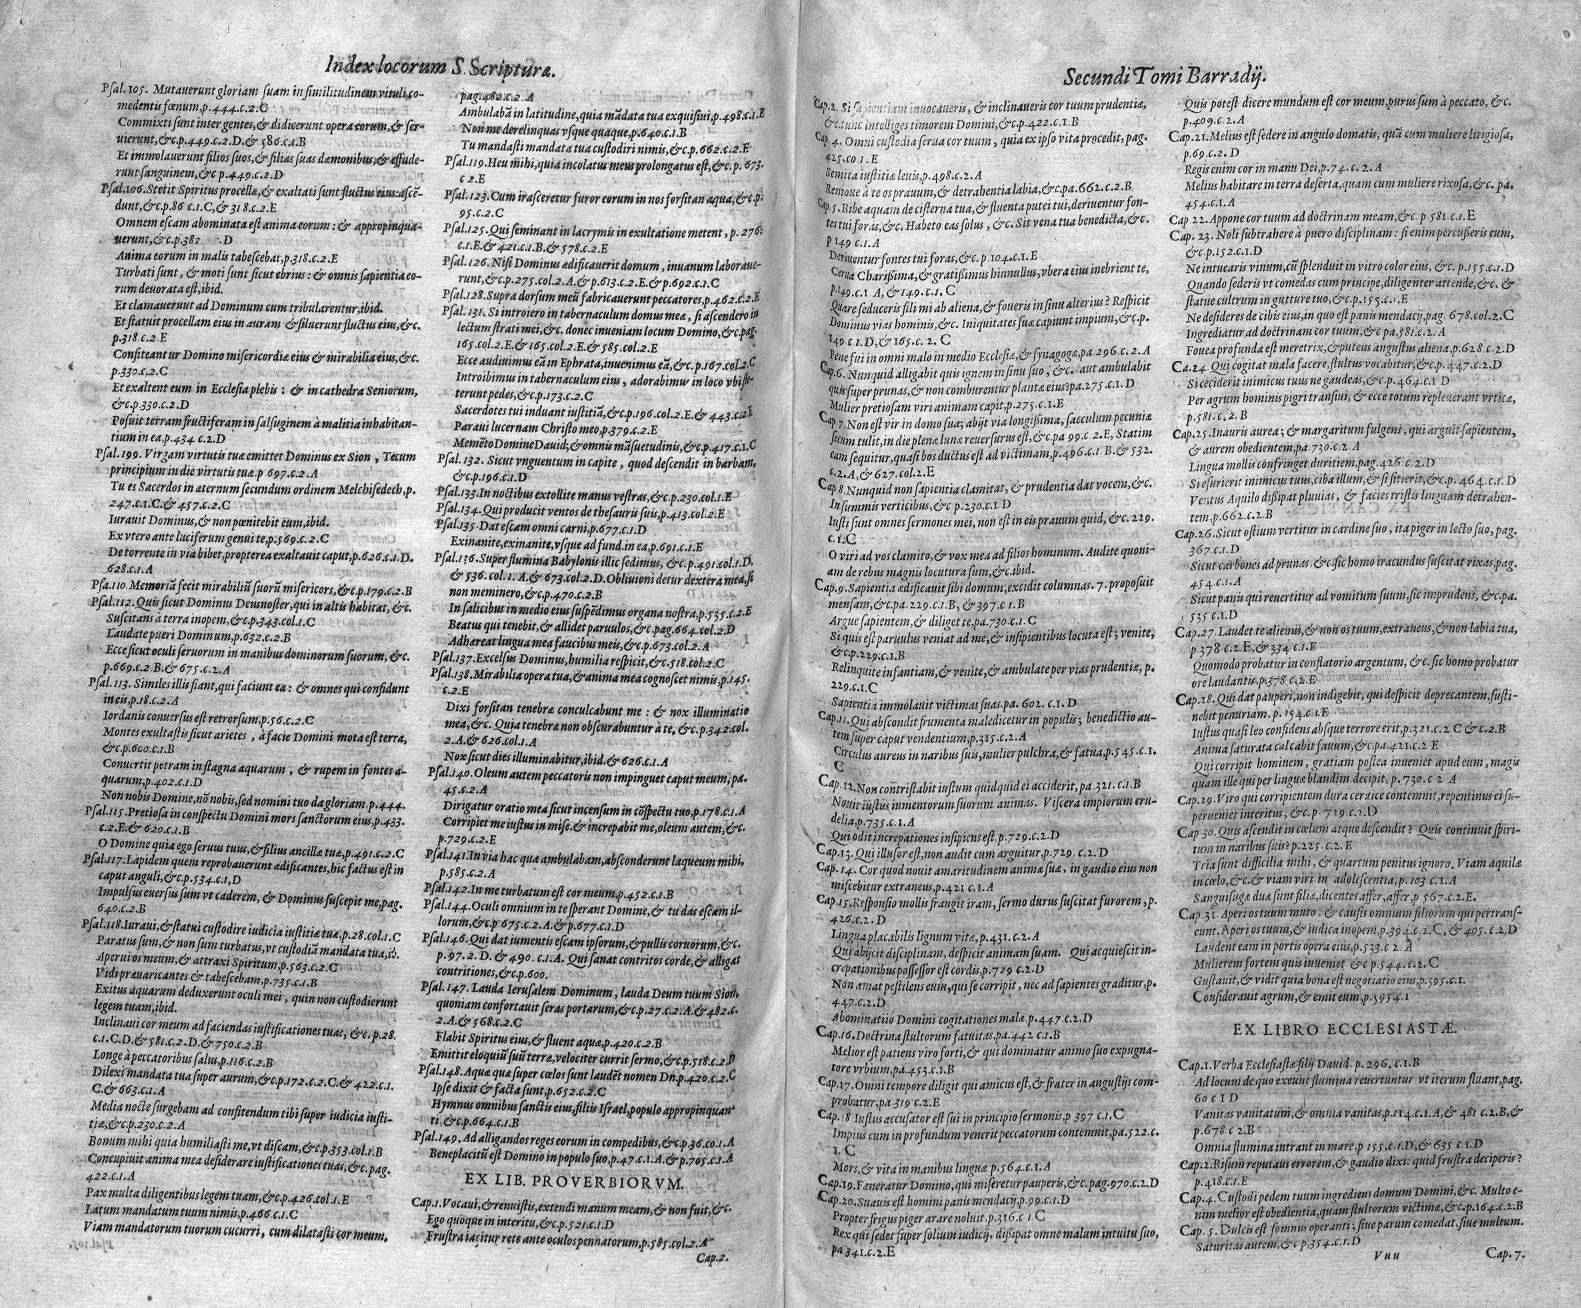 Index locorum S. Scripturæ.
Psal.105. Mutauerunt gloriam suam in similitudinem vituli co-
medentis fœnum,p.444.c.2.C
Commixti sunt inter gentes,& didicerunt opera eorum,& ser-
uierunt,&c.p.449.c.2.D.& 586.c.1.B
Et immolauerunt filios suos,& filias suas dæmonibus,& effude-
runt sanguinem,&c p.449.c.2.D
Psal.106.Stetit Spiritus procellæ,& exaltati sunt fluctus eius:ascẽ-
dunt,&c.p.86 c.1.C,& 318.c.2.E
Omnem escam abominata est anima eorum : & appropinqua-
uerunt,&c.p.382 .D
Anima eorum in malis tabescebat,p.318.c.2.E
Turbati sunt , & moti sunt sicut ebrius : & omnis sapientia eo-
rum deuorata est,ibid.
Et clamauerunt ad Dominum cum tribularentur,ibid.
Et statuit procellam eius in auram & siluerunt fluctus eius,&c.
p.318.c.2.E
Confiteantur Domino misericordiæ eius & mirabilia eius,&c.
p.330.c.2.C
Et exaltent eum in Ecclesia plebis : & in cathedra Seniorum,
&c.p.330.c.2.D
Posuit terram fructiferam in salsuginem à malitia inhabitan-
tium in ea,p.434 c.2.D
Psal.199. Virgam virtutis tuæ emittet Dominus ex Sion , Tecum
principium in die virtutis tuæ.p 697.c.2.A
Tu es Sacerdos in æternum secundum ordinem Melchisedech,p.
247.c.1.C.& 457.c.2.C
Iurauit Dominus,& non pœnitebit eum,ibid.
Ex vtero ante luciferum genui te,p.569.c.2.C
De torrente in via bibet,propterea exaltauit caput,p.626.c.1.D.
628.c.1.A
Psa.110.Memoriã fecit mirabiliũ suorũ misericors,&c.p.179.c.2.B
Psal.112.Quis sicut Dominus Deus noster,qui in altis habitat,&c.
Suscitans à terra inopem,&c.p.343.col.1.C
Laudate pueri Dominum,p.632.c.2.B
Ecce sicut oculi seruorum in manibus dominorum suorum, &c.
p.669.c.2.B.& 675.c.2.A
Psal.113. Similes illis fiant,qui faciunt ea : & omnes qui confidunt
in eis,p.18.c.2.A
Iordanis conuersus est retrorsum,p.56.c.2.C
Montes exultastis sicut arietes , à facie Domini mota est terra,
&c.p.600.c.1.B
Conuertit petram in stagna aquarum , & rupem in fontes a-
quarum,p.402.c.1.D
Non nobis Domine,nõ nobis,sed nomini tuo da gloriam.p.444.
Psal.115.Pretiosa in conspectu Domini mors sanctorum eius,p.433.
c.2.E.& 620.c.1.B
O Domine quia ego seruus tuus,& filius ancillæ tuæ,p.491.c.2.C
Psal.117.Lapidem quem reprobauerunt ædificantes,hic factus est in
caput anguli,&c.p.534.c.1,D
Impulsus euersus sum vt caderem, & Dominus suscepit me,pag.
640.c.2.B
Psal.118.Iuraui,& statui custodire iudicia iustitiæ tuæ,p.28.col.1.C
Paratus sum,& non sum turbatus,vt custodiã mandata tua,ib.
Aperui os meum,& attraxi Spiritum,p.563.c.2.C
Vidi præuaricantes & tabescebam,p.735.c.1.B
Exitus aquarum deduxerunt oculi mei , quia non custodierunt
legem tuam,ibid.
Inclinaui cor meum ad faciendas iustificationes tuas, &c.p.28.
c.1.C.D.& 581.c.2.D.& 750.c.2.B
Longe à peccatoribus salus,p.116.c.2.B
Dilexi mandata tua super aurum,&c.p.172.c.2.C.& 422.c.1.
C.& 663.c.1.A
Media nocte surgebam ad confitendum tibi super iudicia iusti-
tiæ,&c.p.230.c.2.A
Bonum mihi quia humiliasti me,vt discam,&c.p.353.col.1.B
Concupiuit anima mea desiderare iustificationes tuas,&c.pag.
422.c.1.A
Pax multa diligentibus legem tuam,&c.p.426.col.1.E
Latum mandatum tuum nimis,p.466.c.1.C
Viam mandatorum tuorum cucurri, cum dilatasti cor meum,
pag.482.c.2.A
Ambulabã in latitudine,quia mãdata tua exquisiui,p.498.c.1.E
Non me derelinquas vsque quaque,p.640.c.1.B
Tu mandasti mandata tua custodiri nimis,&c.p.662.c.2.E
Psal.119.Heu mihi,quia incolatus meus prolongatus est,&c.p. 673.
c 2.E
Psal.123.Cum irasceretur furor eorum in nos forsitan aqua,&c.p.
95.c.2.C
Psal.125.Qui seminant in lacrymis in exultatione metent , p.276.
c.1.E.& 421.c.1.B.& 578.c.2.E
Psal.126.Nisi Dominus ædificauerit domum , inuanum laboraue-
runt,&c.p.275.col.2.A.& p.613.c.2.E.& p.692.c.1.C
Psal.128.Supra dorsum meũ fabricauerunt peccatores,p.462.c.2.E
Psal.131.Si introiero in tabernaculum domus meæ , si ascendero in
lectum strati mei,&c. donec inueniam locum Domino,&c.pag.
165.col.2.E.& 165.col.2.E.& 585.col.2.E
Ecce audiuimus eã in Ephrata,inuenimus eã,&c.p.167.col.2.C
Introibimus in tabernaculum eius , adorabimus in loco vbi ste-
terunt pedes,&c.p.173.c.2.C
Sacerdotes tui induant iustitiã,&c.p.196.col.2.E.& 443.c.2.E
Paraui lucernam Christo meo,p.379.c.2.E
Memẽto Domine Dauid,& omnis mãsuetudinis,&c.p.417.c.1.C
Psal.132. Sicut vnguentum in capite , quod descendit in barbam,
&c.p.196.c.1.D
Psal.133.In noctibus extollite manus vestras,&c.p.230.col.1.E
Psal.134.Qui producit ventos de thesauris suis,p.413.col.2.E
Psal.135.Dat escam omni carni,p.677.c.1.D
Exinanite,exinanite,vsque ad fund.in ea,p.691.c.1.E
Psal.136.Super flumina Babylonis illic sedimus, &c.p.491.col.1.D.
& 536.col.1. A.& 673.col.2.D.Obliuioni detur dextera mea,si
non meminero,&c.p.470.c.2.B
In salicibus in medio eius suspẽdimus organa nostra,p.535.c.2.E
Beatus qui tenebit,& allidet paruulos,&c.pag.664.col.2.D
Adhæreat lingua mea faucibus meis,&c.p.673.col.2.A
Psal.137.Excelsus Dominus,humilia respicit,&c.518.col.2.C
Psal.138.Mirabilia opera tua,& anima mea cognoscet nimis,p.145.
c.2.E
Dixi forsitan tenebræ conculcabunt me : & nox illuminatio
mea,&c. Quia tenebræ non obscurabuntur à te, &c.p.342.col.
2.A.& 626.col.1.A
Nox sicut dies illuminabitur,ibid.& 626.c.1.A
Psal.140.Oleum autem peccatoris non impinguet caput meum,pa.
45.c.2.A
Dirigatur oratio mea sicut incensum in cõspectu tuo,p.178.c.1.A
Corripiet me iustus in mise.& increpabit me,oleum autem,&c.
p.729.c.2.E
Psal.141.In via hac qua ambulabam,absconderunt laqueum mihi,
p.585.c.2.A
Psal.142.In me turbatum est cor meum,p.452.c.1.B
Psal.144.Oculi omnium in te sperant Domine,& tu das escam il-
lorum,&c.p 675.c.2.A.& p.677.c.1.D
Psal.146.Qui dat iumentis escam ipsorum,& pullis coruorum,&c.
p.97.2.D.& 490.c.1.A.Qui sanat contritos corde,& alligat
contritiones,&c.p.600.
Psal.147. Lauda Ierusalem Dominum, lauda Deum tuum Sion,
quoniam confortauit seras portarum,&c.p.27.c.2.A.& 482.c.
2.A.& 568.c.2.C
Flabit Spiritus eius,& fluent aquæ,p.420.c.2.B
Emittit eloquiũ suũ terræ,velociter currit sermo,&c.p.518.c.2.D
Psal.148.Aquæ quæ super cœlos sunt laudẽt nomen Dñ,p.420.c.2.C
Ipse dixit & facta sunt,p.652.c.2.C
Hymnus omnibus sanctis eius,filiis Israel,populo appropinquan
ti,&c.p.664.c.1.B
Psal.149.Ad alligandos reges eorum in compedibus,&c.p.36.co.1.A
Beneplacitũ est Domino in populo suo,p.47.c.1.A.& p.705.c.1.A
EX LIB. PROVERBIORVM.
Cap.1.Vocaui,& renuistis,extendi manum meam,& non fuit,&c.
Ego quoque in interitu,&c.p.521.c.1.D
Frustra iacitur rete ante oculos pennatorum,p.585.col.2.A
Cap.2.
Secundi Tomi Barradij.
Cap.2. Si sapientiam inuocaueris, & inclinaueris cor tuum prudentiæ,
&c.tunc intelliges timorem Domini,&c.p.422.c.1.B
Cap 4. Omni custodia serua cor tuum , quia ex ipso vita procedit, pag.
425.co.1.E
Semita iustitiæ leuis,p.498.c.2.A
Remoue à te os prauum,& detrahentia labia,&c.pa.662.c.2.B
Cap.5.Bibe aquam de cisterna tua,& fluenta putei tui,deriuentur fon-
tes tui foras,&c. Habeto eas solus , &c. Sit vena tua benedicta,&c.
p 149 c.1.A
Deriuentur fontes tui foras,&c.p.104.c.1.E
Cerua Charissima,& gratissimus hinnullus,vbera eius inebrient te,
p.149.c.1 A,& 149.c.1.C
Quare seduceris fili mi ab aliena,& foueris in sinu alterius? Respicit
Dominus vias hominis,&c. Iniquitates suæ capiunt impium,&c.p.
149 c 1.D,& 165.c. 2. C
Pene fui in omni malo in medio Ecclesiæ,& synagogæ,pa 296.c.2.A
Cap.6.Nunquid alligabit quis ignem in sinu suo, &c. aut ambulabit
quis super prunas,& non comburentur plantæ eius?pa.275.c.1.D
Mulier pretiosam viri animam capit,p.275.c.1.E
Cap 7.Non est vir in domo sua; abijt via longissima, sacculum pecuniæ
secum tulit,in die plenæ lunæ reuersurus est,&c.pa 99.c 2.E, Statim
eam sequitur,quasi bos ductus est ad victimam,p.496.c.1 B.& 532.
c.2.A,& 627.col.2.E
Cap 8.Nunquid non sapientia clamitat, & prudentia dat vocem,&c.
In summis verticibus,&c p.230.c.1 D
Iusti sunt omnes sermones mei, non est in eis prauum quid, &c.229.
c.1.C
O viri ad vos clamito,& vox mea ad filios hominum. Audite quoni-
am de rebus magnis locutura sum,&c.ibid.
Cap.9.Sapientia ædificauit sibi domum,excidit columnas. 7. proposuit
mensam,&c.pa.229.c.1.B, & 397.c 1.B
Argue sapientem,& diliget te,pa.730.c.1.C
Si quis est paruulus veniat ad me,& insipientibus locuta est; venite,
&c.p.229.c.1.B
Relinquite infantiam,& venite,& ambulate per vias prudentiæ, p.
229.c.1.C
Sapientia immolauit victimas suas.pa.602. c.1.D
Cap.11.Qui abscondit frumenta maledicetur in populis; benedictio au-
tem super caput vendentium,p.315.c.2.A
Circulus aureus in naribus suis,mulier pulchra,& fatua,p.545.c.1.
C
Cap.12.Non contristabit iustum quidquid ei acciderit,pa.321.c.1.B
Nouit iustus iumentorum suorum animas. Viscera impiorum cru-
delia,p.735.c.1.A
Qui odit increpationes insipiens est,p.729.c.2.D
Cap.13.Qui illusor est,non audit cum arguitur,p.729. c.2.D
Cap.14.Cor quod nouit amaritudinem animæ suæ, in gaudio eius non
miscebitur extraneus,p.421 c.1.A
Cap.15.Responsio mollis frangit iram, sermo durus suscitat furorem, p.
426.c.2.D
Lingua placabilis lignum vitæ,p.431.c.2.A
Qui abijcit disciplinam, despicit animam suam. Qui acquiescit in-
crepationibus possessor est cordis,p.729 c.2.D
Non amat pestilens eum,qui se corripit, nec ad sapientes graditur,p.
447.c.2.D
Abominatiio Domini cogitationes malæ,p.447.c.2.D
Cap.16.Doctrina stultorum fatuitas,pa.442 c.1.B
Melior est patiens viro forti, & qui dominatur animo suo expugna-
tore vrbium,pa.453.c.1.B
Cap.17.Omni tempore diligit qui amicus est,& frater in angustijs com-
probatur,pa 319 c.2.E
Cap.18 Iustus accusator est sui in principio sermonis,p 397 c.1.C
Impius cum in profundum venerit peccatorum contemnit,pa.522.c.
1. C
Mors,& vita in manibus linguæ p.564.c.1.A
Cap.19.Fœneratur Domino, qui miseretur pauperis,&c.pag.970.c.2.D
Cap.20.Suauis est homini panis mendacij,p.99.c.1.D
Propter frigus piger arare noluit,p.316.c 1.C
Rex qui sedet super solium iudicij, dissipat omne malum intuitu suo,
pa 341.c.2.E
Quis potest dicere mundum est cor meum,purus sum à peccato, &c.
p.409.c.2.A
Cap.21.Melius est sedere in angulo domatis, quã cum muliere litigiosa,
p.69.c.2.D
Regis enim cor in manu Dei,p.74.c.2.A
Melius habitare in terra deserta,quam cum muliere rixosa,&c. pa.
454.c.1.A
Cap 22.Appone cor tuum ad doctrinam meam,&c.p 581.c.1.E
Cap. 23. Noli subtrahere à puero disciplinam : si enim percusseris eum,
&c.p.152.c.1.D
Ne intuearis vinum,cũ splenduit in vitro color eius, &c.p.155.c.1.D
Quando sederis vt comedas cum principe,diligenter attende,&c. &
statue cultrum in gutture tuo,&c.p.155.c.1.E
Ne desideres de cibis eius,in quo est panis mendacij,pag.678.col.2.C
Ingrediatur ad doctrinam cor tuum,&c pa.581.c.2.A
Fouea profunda est meretrix,& puteus angustus aliena,p.628 c.2.D
Ca.24.Qui cogitat mala facere,stultus vocabitur,&c.p.447.c.2.D
Si ceciderit inimicus tuus ne gaudeas,&c.p.464.c.1 D
Per agrum hominis pigri transiui, & ecce totum repleuerant vrticæ,
p.581.c.2.B
Cap.25.Inauris aurea ; & margaritum fulgens, qui arguit sapientem,
& aurem obedientem,pa.730.c.2.A
Lingua mollis confringet duritiem,pag.426 c.2.D
Si esurierit inimicus tuus,ciba illum,& si sitierit,&c.p.464.c.1.D
Ventus Aquilo dissipat pluuias, & facies tristis linguam detrahen-
tem,p.662.c.2.B
Cap.26.Sicut ostium vertitur in cardine suo , ita piger in lecto suo,pag.
367.c.1.D
Sicut carbones ad prunas &c sic homo iracundus suscitat rixas,pag.
454.c.1.A
Sicut panis qui reuertitur ad vomitum suum,sic imprudens, &c.pa.
535 c.1.D
Cap.27.Laudet te alienus,& non os tuum,extraneus,& non labia tua,
p 378 c.2.E,& 334 c.1.E
Quomodo probatur in conflatorio argentum, &c.sic homo probatur
ore laudantis,p.378.c.2.E
Cap.28.Qui dat pauperi,non indigebit, qui despicit deprecantem,susti-
nebit penuriam. p.154.c.1.E
Iustus quasi leo confidens absque terrore erit,p.321.c.2 C & c.2.B
Anima saturata calcabit fauum,&c.pa.421.c.2 E
Qui corripit hominem, gratiam postea inueniet apud eum, magis
quam ille qui per linguæ blandim decipit, p.730.c 2 A
Cap.29.Viro qui corripientem dura ceruice contemnit,repentinus ei su-
perueniet interitus, &c.p. 719 c.1.D
Cap 30.Quis ascendit in cœlum atque descendit? Quis continuit spiri-
tum in naribus suis?p.225.c.2.E
Tria sunt difficilia mihi, & quartum penitus ignoro. Viam aquilæ
in cœlo,&c.& viam viri in adolescentia,p.103 c.1.A
Sanguisugæ duæ sunt filiæ,dicentes affer,affer,p 567.c.2.E.
Cap.31.Aperi os tuum muto : & causis omnium filiorum qui pertrans-
eunt.Aperi os tuum,& iudica inopem,p.394.c.2.C, & 405.c.2,D
Laudent eam in portis opera eius,p.533.c 2.A
Mulierem fortem quis inueniet &c.p 544.c.2.C
Gustauit,& vidit quia bona est negotiatio eius,p.595.c.1.
Considerauit agrum,& emit eum,p.595.c.1
EX LIBRO ECCLESIASTÆ.
Cap.1.Verba Ecclesiastæ filij Dauid. p.296.c.1.B
Ad locum de quo exeunt flumina reuertuntur vt iterum fluant,pag.
60 c 1 D
Vanitas vanitatum,& omnia vanitas,p.114.c.1.A,& 481 c.2.B,&
p.678.c 2.B
Omnia flumina intrant in mare,p 155.c.1.D,& 635 c.1.D
Cap.2.Risum reputaui errorem,& gaudio dixi: quid frustra deciperis?
p.418.c.1.E
Cap.4. Custodi pedem tuum ingrediens domum Domini,&c. Multo e-
nim melior est obedientia,quam stultorum victimæ,&c.p.164.c.2.B
Cap. 5. Dulcis est somnus operanti; siue parum comedat,siue multum.
Saturitas autem,&c p.354.c.1.D
Vuu
Cap. 7.